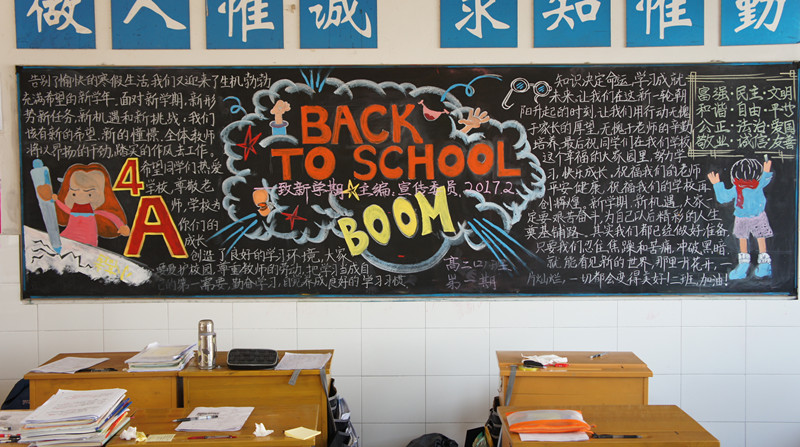 做 人 惟 诚 求 知 惟 勤
告别了愉快的寒假生活,我们又迎来了生机勃勃
充满希望的新学年。面对新学期,新形
势新任务,新机遇和新挑战,我们
怀着新的希望,新的憧憬,全体教师
将以昂扬的干劲,踏实的作风去工作。
希望同学们热爱
学校,尊敬老
师,学校去
你们的
成长
创造了良好的学习环境,大家
要爱护校园,尊重教师的劳动,把学习当成自
己的第一需要,勤奋学习,自觉养成良好的学习习惯
4
A
BACK
TO SCHOOL
致新学期
主编:宣传委员,2017.2
BOOM
高二
第一期
知识决定命运,学习成就
未来,让我们在这新一轮朝
阳升起的时刻,让我们用行动无愧
于家长的厚望,无愧于老师的辛勤
培养,最后祝同学们在我们学校
这个幸福的大家园里,努力学
习,快乐成长,祝福我们的老师
平安健康,祝福我们的学校再
创辉煌。新学期,新机遇,大家一
定要艰苦奋斗,为自己以后精彩的人生
奠基铺路。其实我们都已经做好准备,
只要我们忍住焦躁和苦痛,冲破黑暗
就能看见新的世界,那里开花开一
片灿烂,一切都会变得美好!二班,加油!
富强·民主·文明
和谐·自由·平等
公正·法治·爱国
敬业·诚信·友善